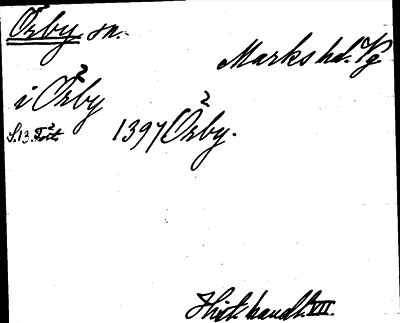 Örby sn.
Marks hd. Vg
i Örby
1397 Örby.
Hist. handl. VII.